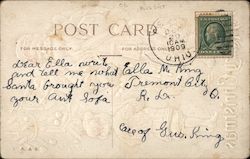 POST CARD
FOR MESSAGE ONLY.
FOR ADDRESS ONLY.
1909
OHIO
Dear Ella write
and tell me what
Santa brought you
your Aunt Sofa
Ella M King
Tremont City
R.1.
O.
Care of Guv. King